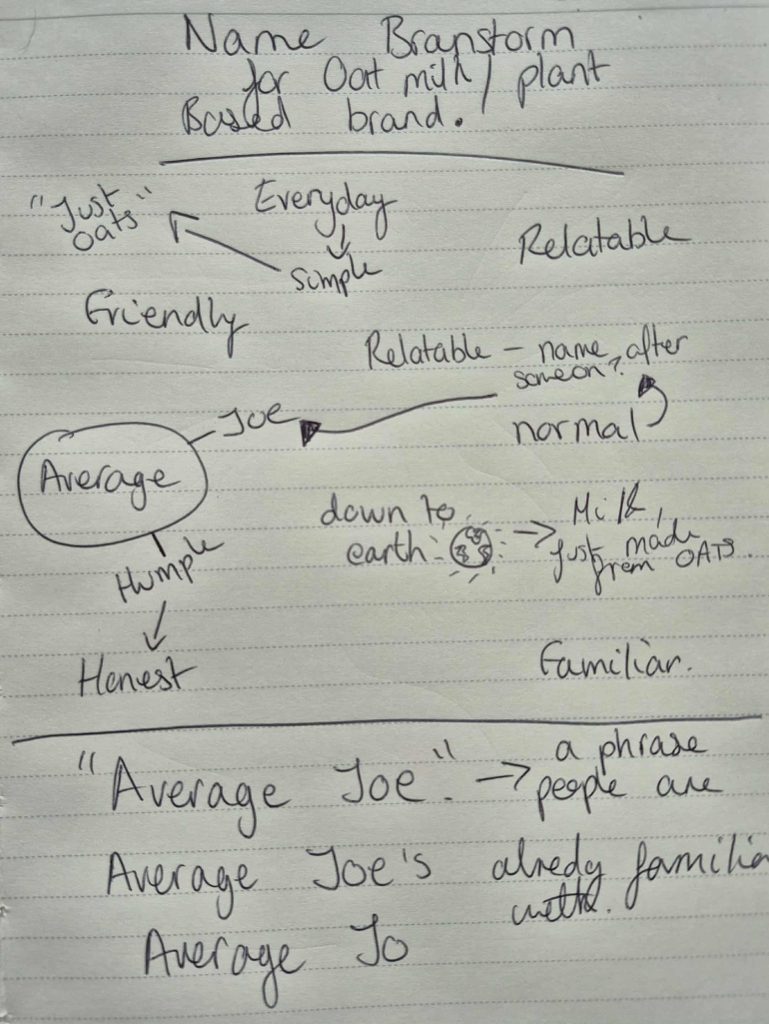 Name Branstorm
for Oat milk / plant
Based brand.
"Just
Oats"
Everyday
Simple
Relatable
Friendly
Relatable - name after
someon?
normal
Joe
Average
down to
earth
Milk,
Just made
from OATS.
Humple
Honest
Familiar.
"Average Joe." → a phrase
people are
Average Joe's alredy familia
with.
Average Jo